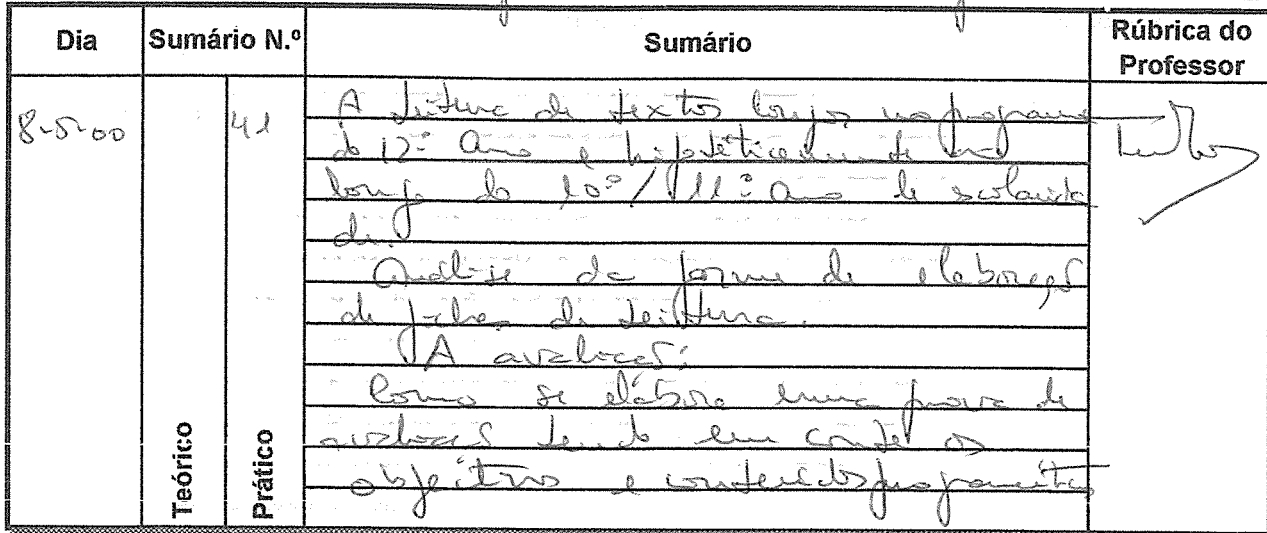 Dia Sumário N.º Sumário Rúbrica do Professor
8-5-00 41 A leitura de textos longos no programa
do 12º Ano e hipoteticamente ao
longo do 10º/11º Ano de escolarida
de.
Análise da forma de elaboração
de fichas de leitura.
A avaliação:
Como se elabora uma prova de
avaliação tendo em conta os
objectivos e conteúdos programáticos
Teórico Prático